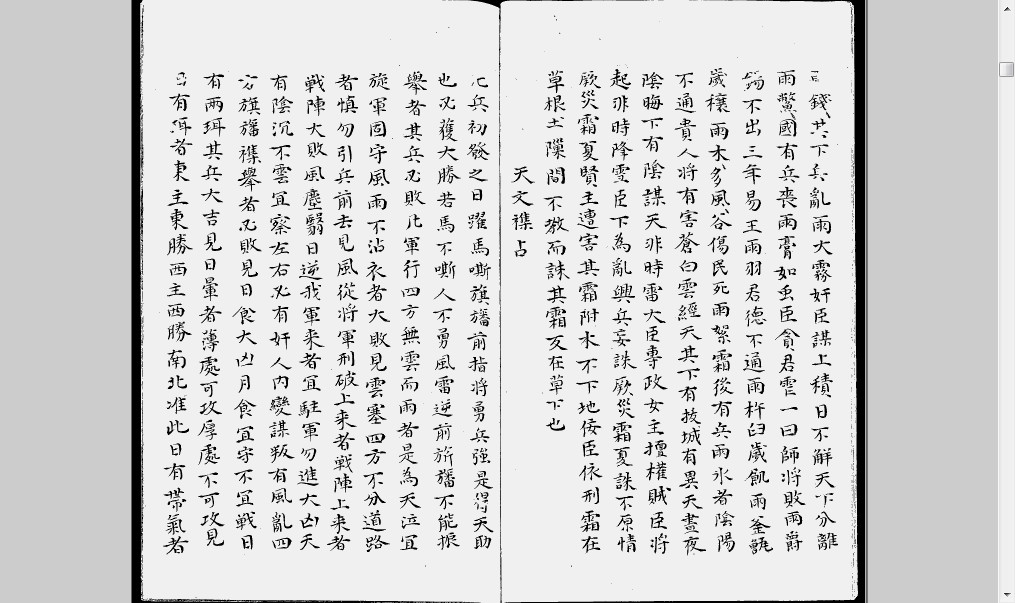 錢其下兵亂雨大霧奸臣謀上積日不解天下分離
雨鷩國有兵喪雨膏如虫臣貪君雹一曰師將敗雨爵
錫不出三年易王雨羽君德不通雨杵臼歲飢雨釜甑
歲穰雨木多風谷傷民死雨絮霜後有兵雨氷者陰陽
不通貴人將有害蒼白雲經天其下有拔城有異天晝夜
陰晦下有陰謀天非時雷大臣專政女主擅權賊臣將
起非時降雪臣下為亂興兵妄誅厥災霜夏誅不原情
厥災霜夏賢主遭害其霜附木不下地佞臣依刑霜在
草根土隟間不教而誅其霜反在草下也
天文襍占
凡兵初發之日躍馬嘶旗旛前指將勇兵強是得天助
也必獲大勝若馬不嘶人不勇風雷逆前旂旛不能振
舉者其兵必敗凡軍行四方無雲而雨者是為天泣宜
旋軍固守風雨不沾衣者大敗見雲塞四方不分道路
者慎勿引兵前去見風從將軍刑破上来者戰陣上来者
戰陣大敗風塵翳日逆我軍来者宜駐軍勿進大凶天
有陰沉不雲宜察左右必有奸人内變謀叛有風亂四
方旗旛襍舉者必敗見日食大凶月食宜守不宜戰日
有兩珥其兵大吉見日暈者薄處可攻厚處不可攻見
日有珥者東主東勝西主西勝南北准此日有帶氣者